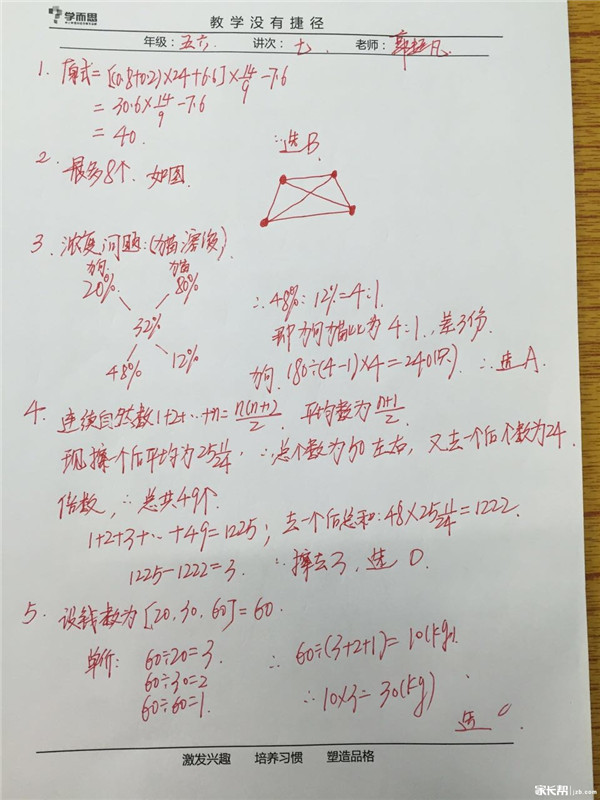 学而思
教学没有捷径
年级:五六 讲次:七 老师:
1. 原式=[(0.8+0.2)×24+6.6]×14/9-7.6
=30.6×14/9-7.6
=40.
2. 最多8个. 如图. ∴选B.
3. 浓度问题:(猫浓度)
狗 猫
20% 80%
32%
48% 12%
∴48%:12%=4:1.
即狗猫比为4:1,差3份
狗 180÷(4-1)×4=240(只) ∴选A.
4. 连续自然数1+2+…+n=n(n+1)/2. 平均数为(n+1)/2.
现擦一个后平均为25 11/24,∴总个数为50左右,又去一个后个数为24
倍数,∴总共49个.
1+2+3+…+49=1225;去一个后总和:48×25 11/24=1222.
1225-1222=3. ∴擦去3,选D.
5. 设钱数为[20,30,60]=60.
单价: 60÷20=3. ∴60÷(3+2+1)=10(kg).
60÷30=2
60÷60=1. ∴10×3=30(kg)
选C
激发兴趣 培养习惯 塑造品格
家长帮 jzb.com